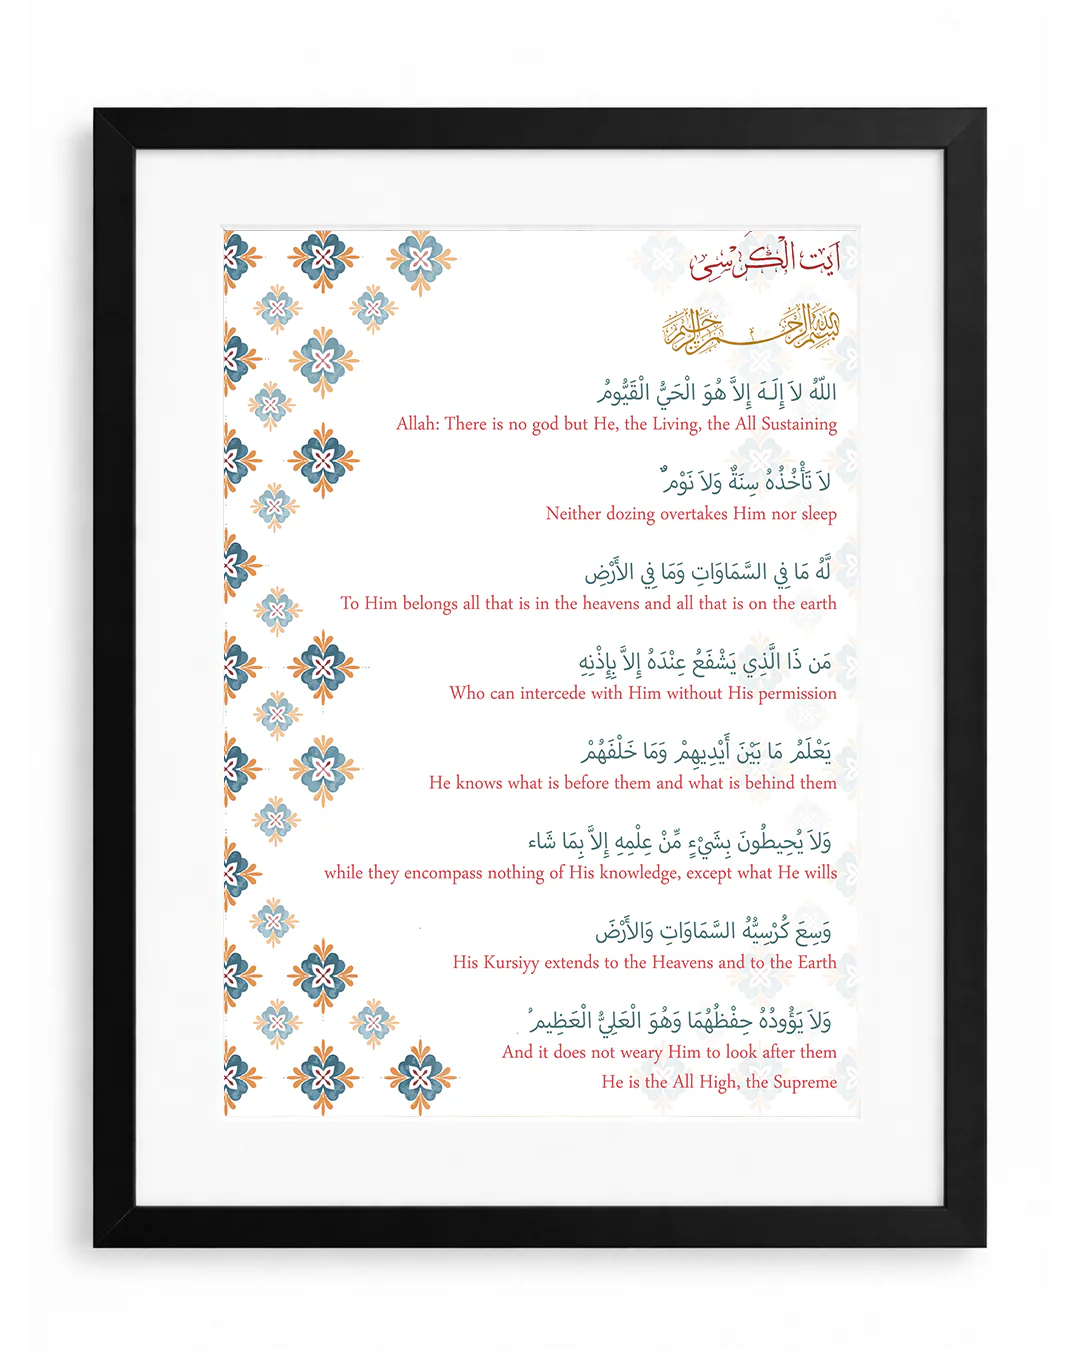 اٰیَت الْکُرْسِیْ
بِسْمِ اللهِ الرَّحْمٰنِ الرَّحِيْمِ
اللّهُ لاَ إِلَـهَ إِلاَّ هُوَ الْحَيُّ الْقَيُّومُ
Allah: There is no god but He, the Living, the All Sustaining
لاَ تَأْخُذُهُ سِنَةٌ وَلاَ نَوْمٌ
Neither dozing overtakes Him nor sleep
لَّهُ مَا فِي السَّمَاوَاتِ وَمَا فِي الأَرْضِ
To Him belongs all that is in the heavens and all that is on the earth
مَن ذَا الَّذِي يَشْفَعُ عِنْدَهُ إِلاَّ بِإِذْنِهِ
Who can intercede with Him without His permission
يَعْلَمُ مَا بَيْنَ أَيْدِيهِمْ وَمَا خَلْفَهُمْ
He knows what is before them and what is behind them
وَلاَ يُحِيطُونَ بِشَيْءٍ مِّنْ عِلْمِهِ إِلاَّ بِمَا شَاء
while they encompass nothing of His knowledge, except what He wills
وَسِعَ كُرْسِيُّهُ السَّمَاوَاتِ وَالأَرْضَ
His Kursiyy extends to the Heavens and to the Earth
وَلاَ يَؤُودُهُ حِفْظُهُمَا وَهُوَ الْعَلِيُّ الْعَظِيمُ
And it does not weary Him to look after them
He is the All High, the Supreme